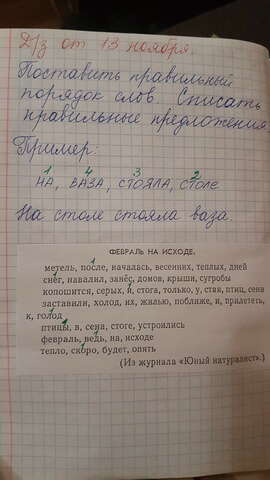 Д/з от 13 ноября.
Поставить правильный
порядок слов. Списать
правильные предложения
Пример:
1 4 3 2
НА, ВАЗА, СТОЯЛА, СТОЛЕ
На столе стояла ваза
ФЕВРАЛЬ НА ИСХОДЕ.
метель, после, началась, весенних, теплых, дней
снег, навалил, занес, домов, крыши, сугробы
копошится, серых, и, стога, только, у, стая, птиц, сена
заставили, холод, их, жилью, поближе, и, прилететь,
к, голод
птицы, в, сена, стоге, устроились
февраль, ведь, на, исходе
тепло, скоро, будет, опять
(Из журнала «Юный натуралист».)